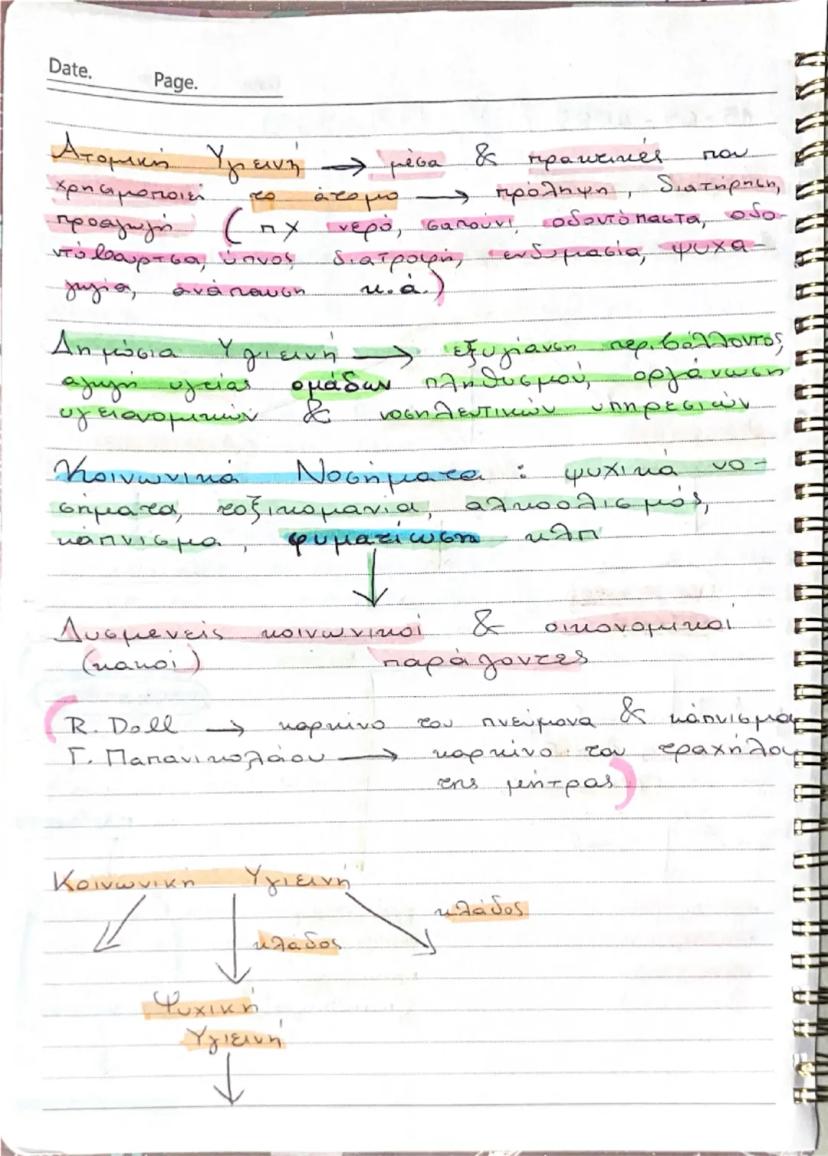 Date. Page.
Ατομική Υγιεινή → μέσα & πρακτικές που
χρησιμοποιεί το άτομο → πρόληψη, διατήρηση,
προαγωγή (πχ νερό, σαπούνι, οδοντόπαστα, οδο-
ντόβουρτσα, ύπνος, διατροφή, ενδυμασία, ψυχα-
γωγία, ανάπαυση κ.ά.)
Δημόσια Υγιεινή → εξυγίανση περιβάλλοντος,
αγωγή υγείας ομάδων πληθυσμού, οργάνωση
υγειονομικών & νοσηλευτικών υπηρεσιών
Κοινωνικά Νοσήματα : ψυχικά νο-
σήματα, τοξικομανία, αλκοολισμός,
κάπνισμα, φυματίωση κλπ
↓
Δυσμενείς κοινωνικοί & οικονομικοί
(κακοί) παράγοντες
(R. Doll → καρκίνο του πνεύμονα & κάπνισμα
Γ. Παπανικολάου → καρκίνο του τραχήλου
της μήτρας)
Κοινωνική Υγιεινή
κλάδος
κλάδος
Ψυχική
Υγιεινή
↓